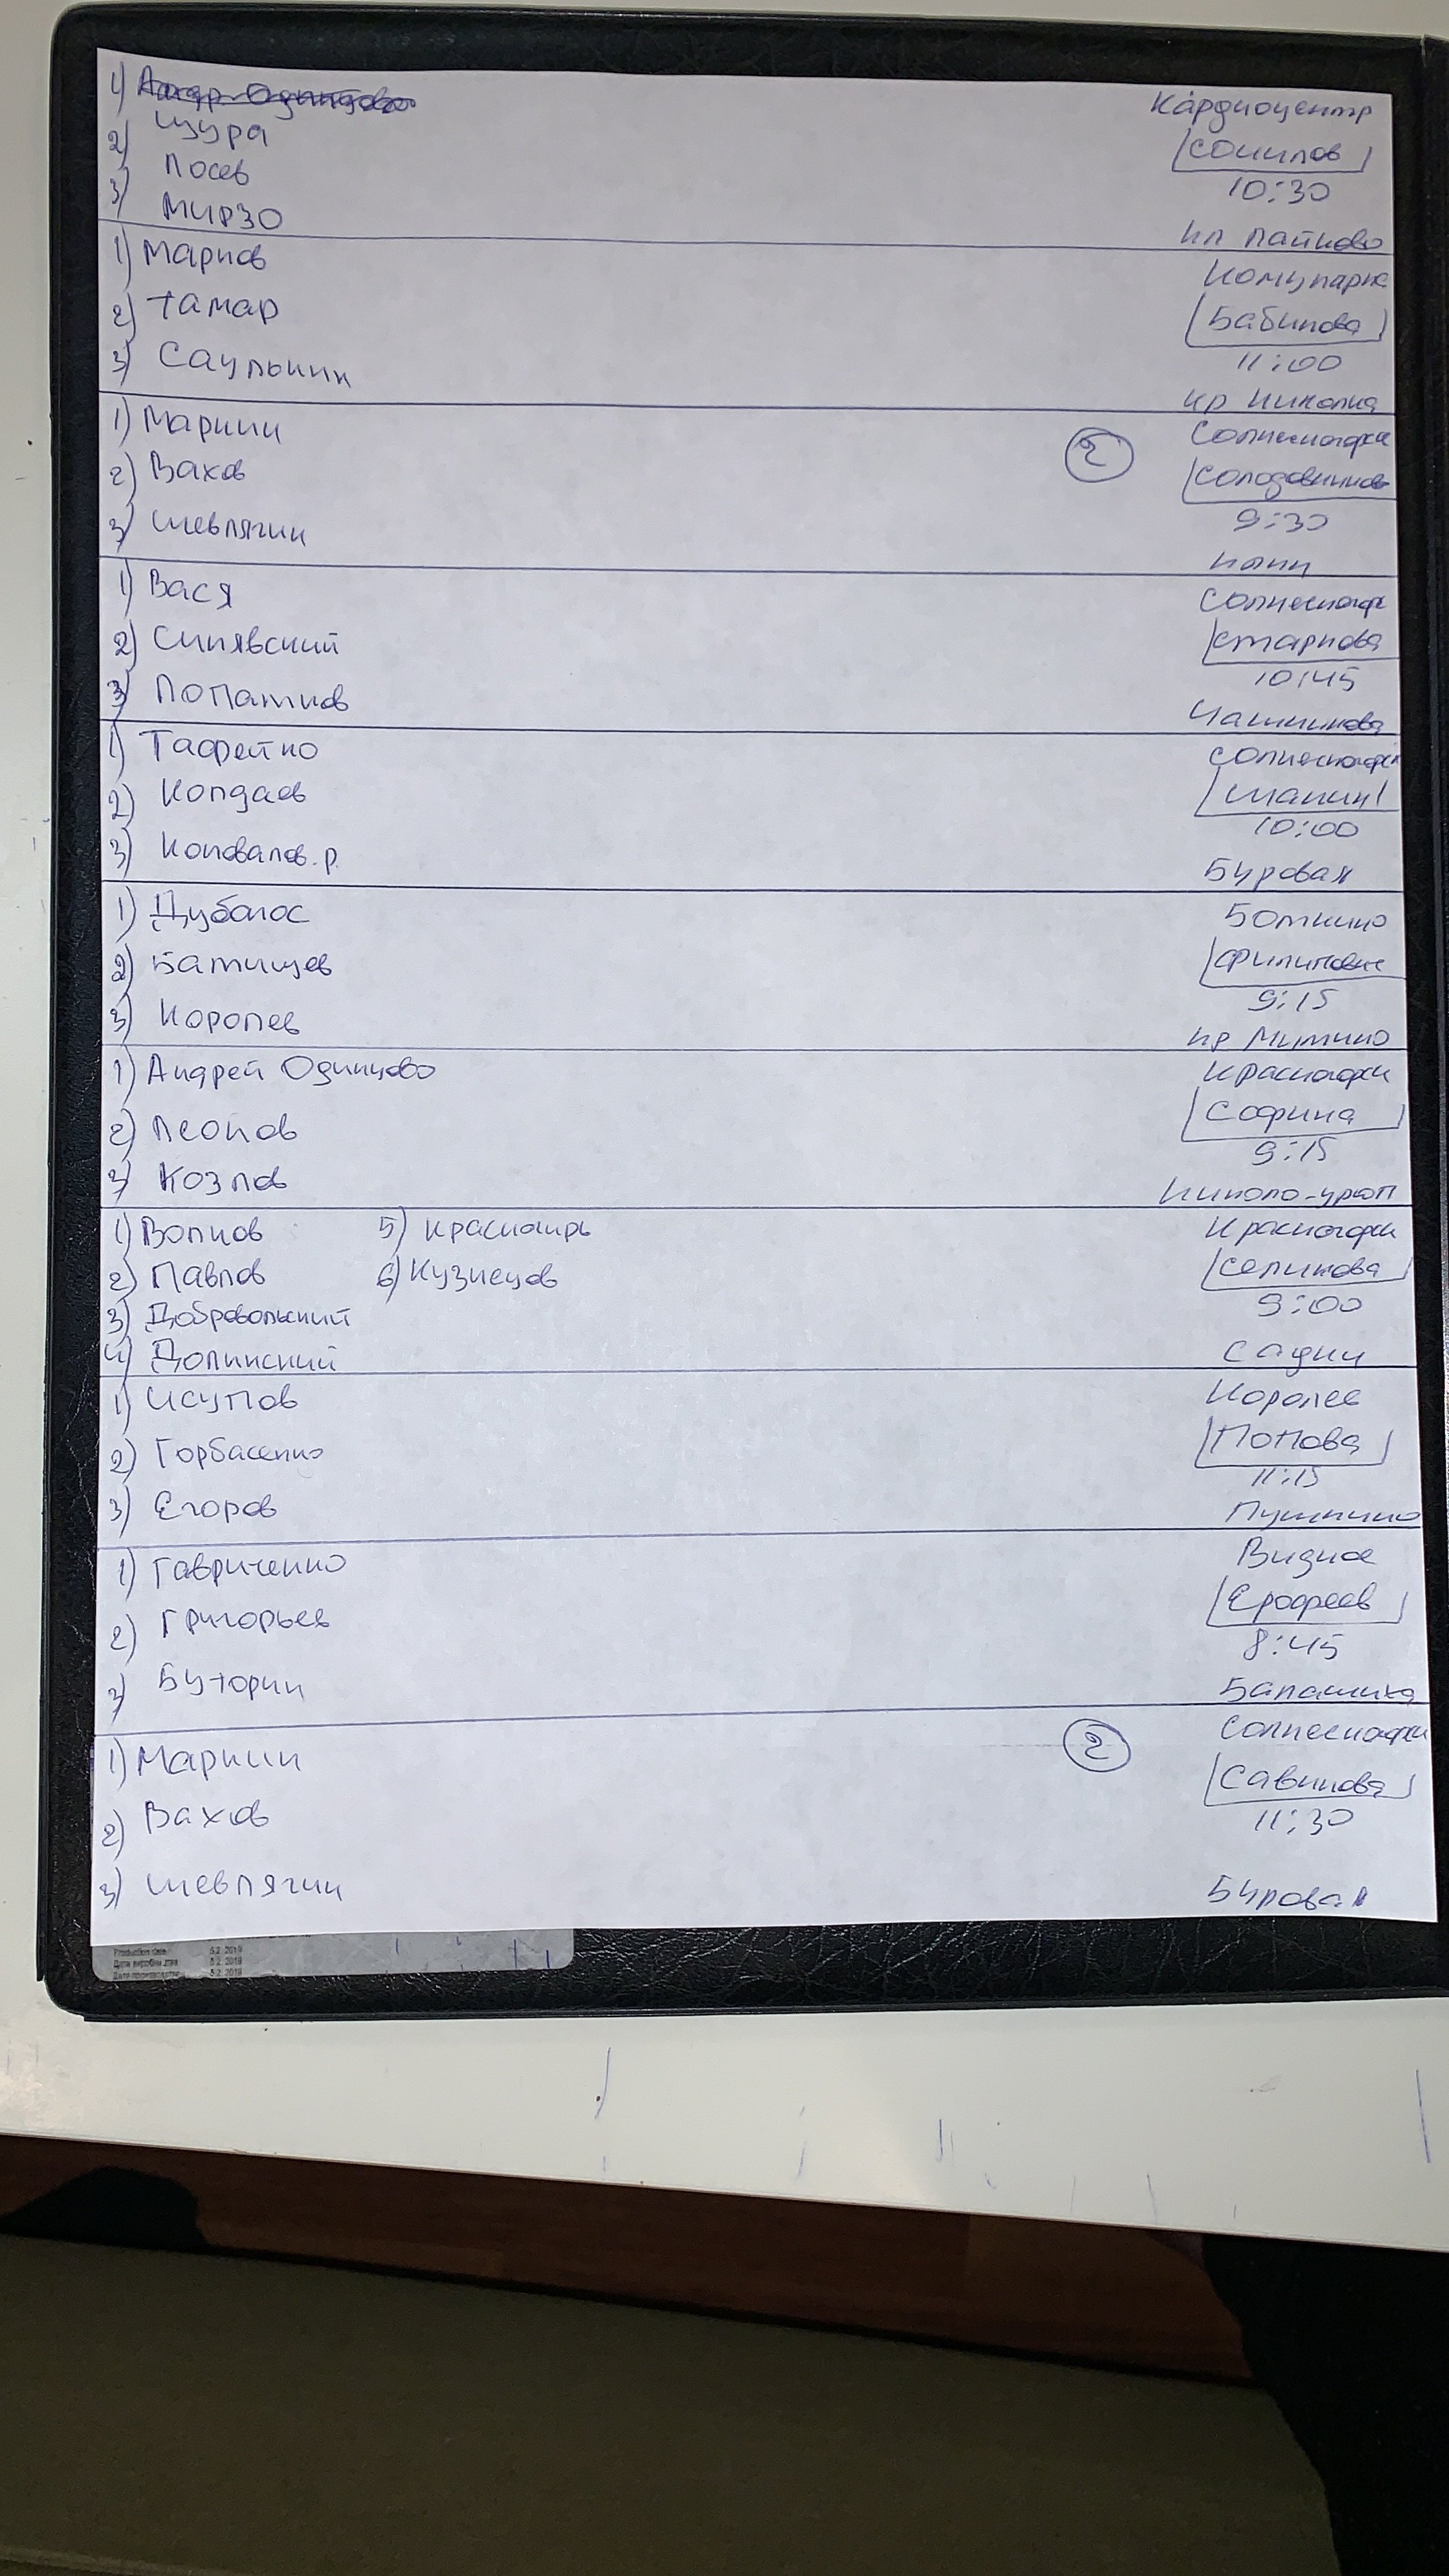 1) Андр. Одинцово
Цура
2) Лосев
3) Мирзо
Кардиоцентр
10:30
1) Марков
2) Тамар
3) Саулькин
Комунарка
Бабикова
11:00
кр Николка
1) Маркин
2) Вахов
3) Шевлягин
2
Солнечногорск
Солодовников
9:30
1) Вася
2) Синявский
3) Лопатков
Солнечногорск
Старкова
10:45
Чашниково
1) Тафейко
2) Колдаев
3) Коновалов.р.
Солнечногорск
Шакин
10:00
Буровая
1) Дубогос
2) Батищев
3) Королев
Боткино
9:15
кр Митино
1) Андрей Одинцово
2) Леонов
3) Козлов
Красногорск
Софина
9:15
Николо-Уроп
1) Волков
5) Красножирь
2) Павлов
6) Кузнецов
3) Добровольский
4) Долинский
Красногорск
Селикова
9:00
1) Исупов
2) Горбасенко
3) Егоров
Королев
Попова
11:15
Пушкино
1) Гавриченко
2) Григорьев
3) Буторин
Видное
Ерофеев
8:45
Балашиха
1) Маркин
2) Вахов
3) Шевлягин
2
Солнечногорск
Савинова
11:30
Буровая
Production date 5.2.2019
Дата виробництва 5.2.2019
Дата производства 5.2.2019